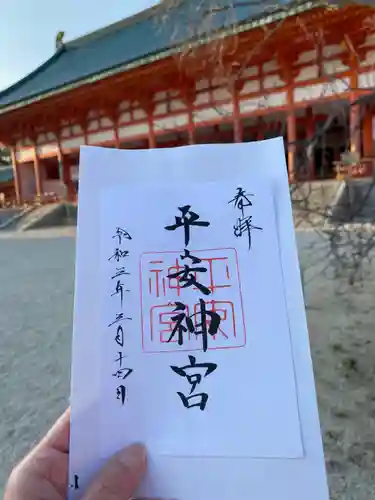 奉拝
平安神宮
平安神宮
令和三年三月十四日